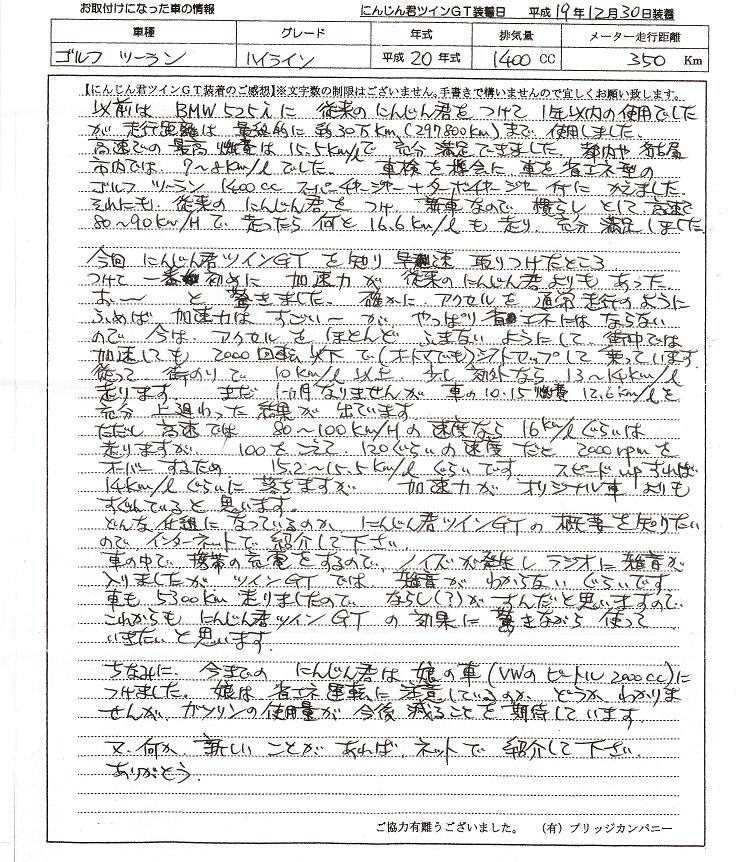 お取付けになった車の情報 にんじん君ツインGT装着日 平成19年12月30日装着
車種 グレード 年式 排気量 メーター走行距離
ゴルフ ツーラン ハイライン 平成 20 年式 1400 CC 350 Km
【にんじん君ツインGT装着のご感想】※文字数の制限はございません。手書きで構いませんので宜しくお願い致します。
以前は BMW 525i に 従来の にんじん君を つけて 1年以内の使用でした
が 走行距離は 最終的に 約30万Km (297,800Km) まで 使用しました。
高速での 最高 燃費は 15.5Km/lで 充分 満足できました。都内や 名古屋
市内では 7〜8Km/l でした。 車検を機会に 車を 省エネ型の
ゴルフ ツーラン 1400cc スーパーチャージャー+ターボチャージャー 付に かえました。
それにも 従来の にんじん君を つけ 新車なので 慣らし として 高速で
80〜90Km/Hで 走ったら 何と 16.6Km/l も 走り 充分 満足しました。
今回 にんじん君ツインGT を 知り 早速 取りつけたところ
つけて 一番初めに 加速力が 従来のにんじん君よりも あった
お〜 と 驚きました。 確かに アクセルを 通常走行のように
ふめば 加速力は すごい〜 が やっぱり 省エネには ならない
ので 今は アクセルを ほとんど ふまない ようにして 街中では
加速しても 2000回転以下 で (オートマでも) シフトアップして 乗っています。
従って 街のりで 10Km/l 以上 少し 郊外なら 13〜14Km/l
走ります。 まだ 1ヵ月なりませんが 車の 10.15 燃費 12.6Km/l を
充分 上回わった 結果が 出ています。
ただし 高速では 80〜100Km/H の 速度なら 16Km/l ぐらいは
走りますが 100をこえて 120ぐらいの速度 だと 2000rpm を
オーバー するため 15.2〜15.5Km/l ぐらいです。 スピードupすれば
14Km/l ぐらいに 落ちますが 加速力が オリジナル車 よりも
すぐれていると 思います。
どんな 仕組に なっているのか にんじん君ツインGT の 概要 を知りたい
ので インターネットで 紹介して下さい
車の中で 携帯の充電をするので、ノイズが発生し ラジオに 雑音が
入りましたが ツインGT では 雑音が わからない ぐらいです。
車も 5300Km 走りましたので ならし(?)が すんだと思いますので
これからも にんじん君ツインGT の 効果に 驚きながら 使って
いきたいと思います。
ちなみに 今までの にんじん君は 娘の車 (VWの ビートル 2000cc)に
つけました。 娘は 省エネ運転に 注意しているのか どうか わかりま
せんが、ガソリンの使用量が 今後 減ることを 期待しています。
又 何か 新しい ことが あれば、ネットで 紹介して 下さい
ありがとう。
ご協力有難うございました。 (有) ブリッジカンパニー